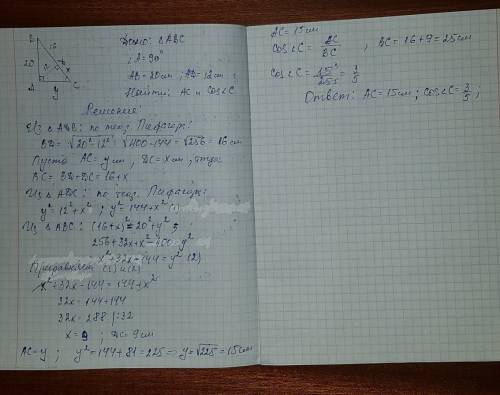 B
16
20
12
x
A
y
C
Дано: △ABC
∠A=90°
AB=20см; AD=12см;
Найти: AC и cos∠C
Решение
Из △ADB: по теор. Пифагора:
BD=√20²-12²=√400-144=√256=16см
Пусть AC=y см, DC=x см, тогда
BC=BD+DC=16+x
Из △ADC: по теор. Пифагора:
y²=12²+x²; y²=144+x² (1)
Из △ABC: (16+x)²=20²+y²;
256+32x+x²=400+y²
x²+32x-144=y² (2)
Приравняем (1) и (2)
x²+32x-144=144+x²
32x=144+144
32x=288 |:32
x=9; DC=9см
AC=y; y²=144+81=225=>y=√225=15см
AC=15см
cos∠C=AC/BC; BC=16+9=25см
cos∠C=15/25=3/5
Ответ: AC=15см; cos∠C=3/5;